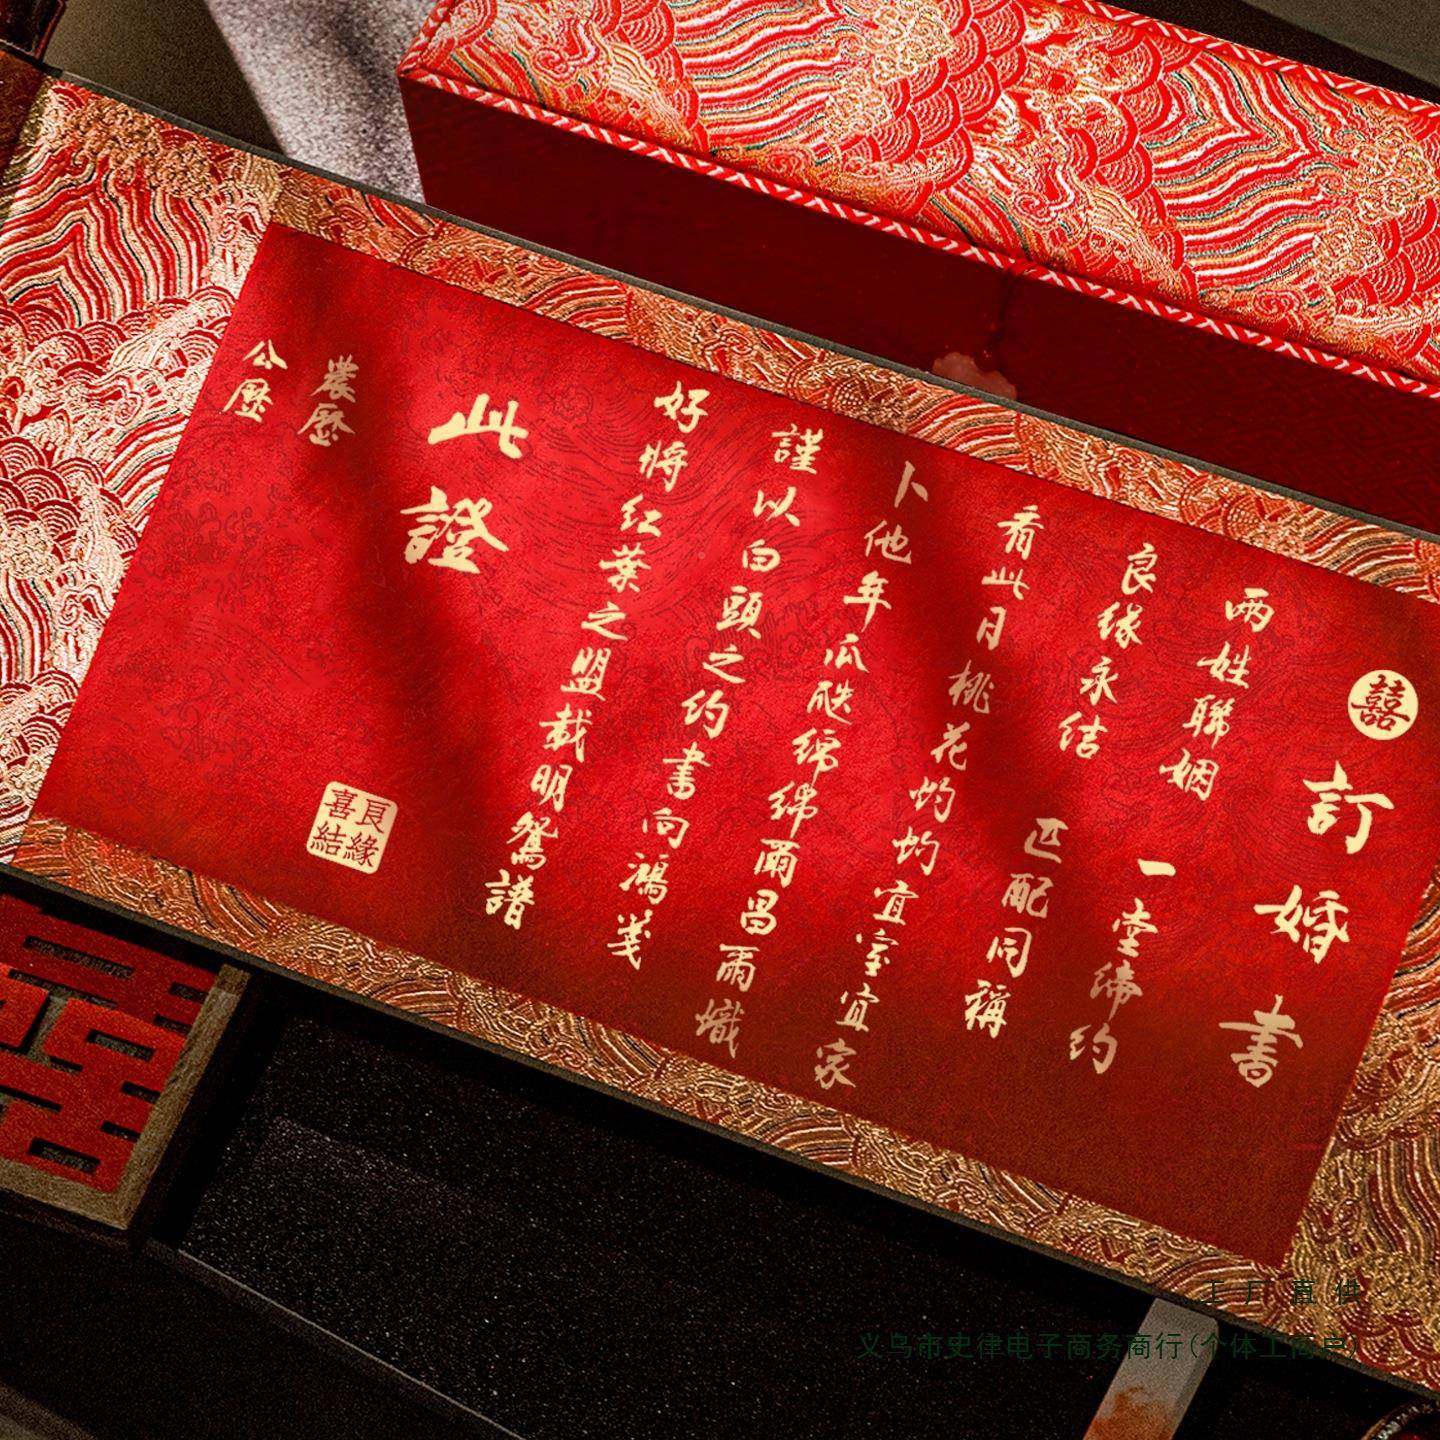 囍
訂婚書
兩姓聯姻 一堂締约
良缘永结 匹配同稱
看此月桃花灼灼宜室宜家
卜他年瓜瓞綿綿爾昌爾熾
謹以白頭之约書向鴻箋
好將红葉之盟載明鴛譜
此證
農歷
公歷
良緣
喜結
工厂直供
义乌市史律电子商务商行(个体工商户)